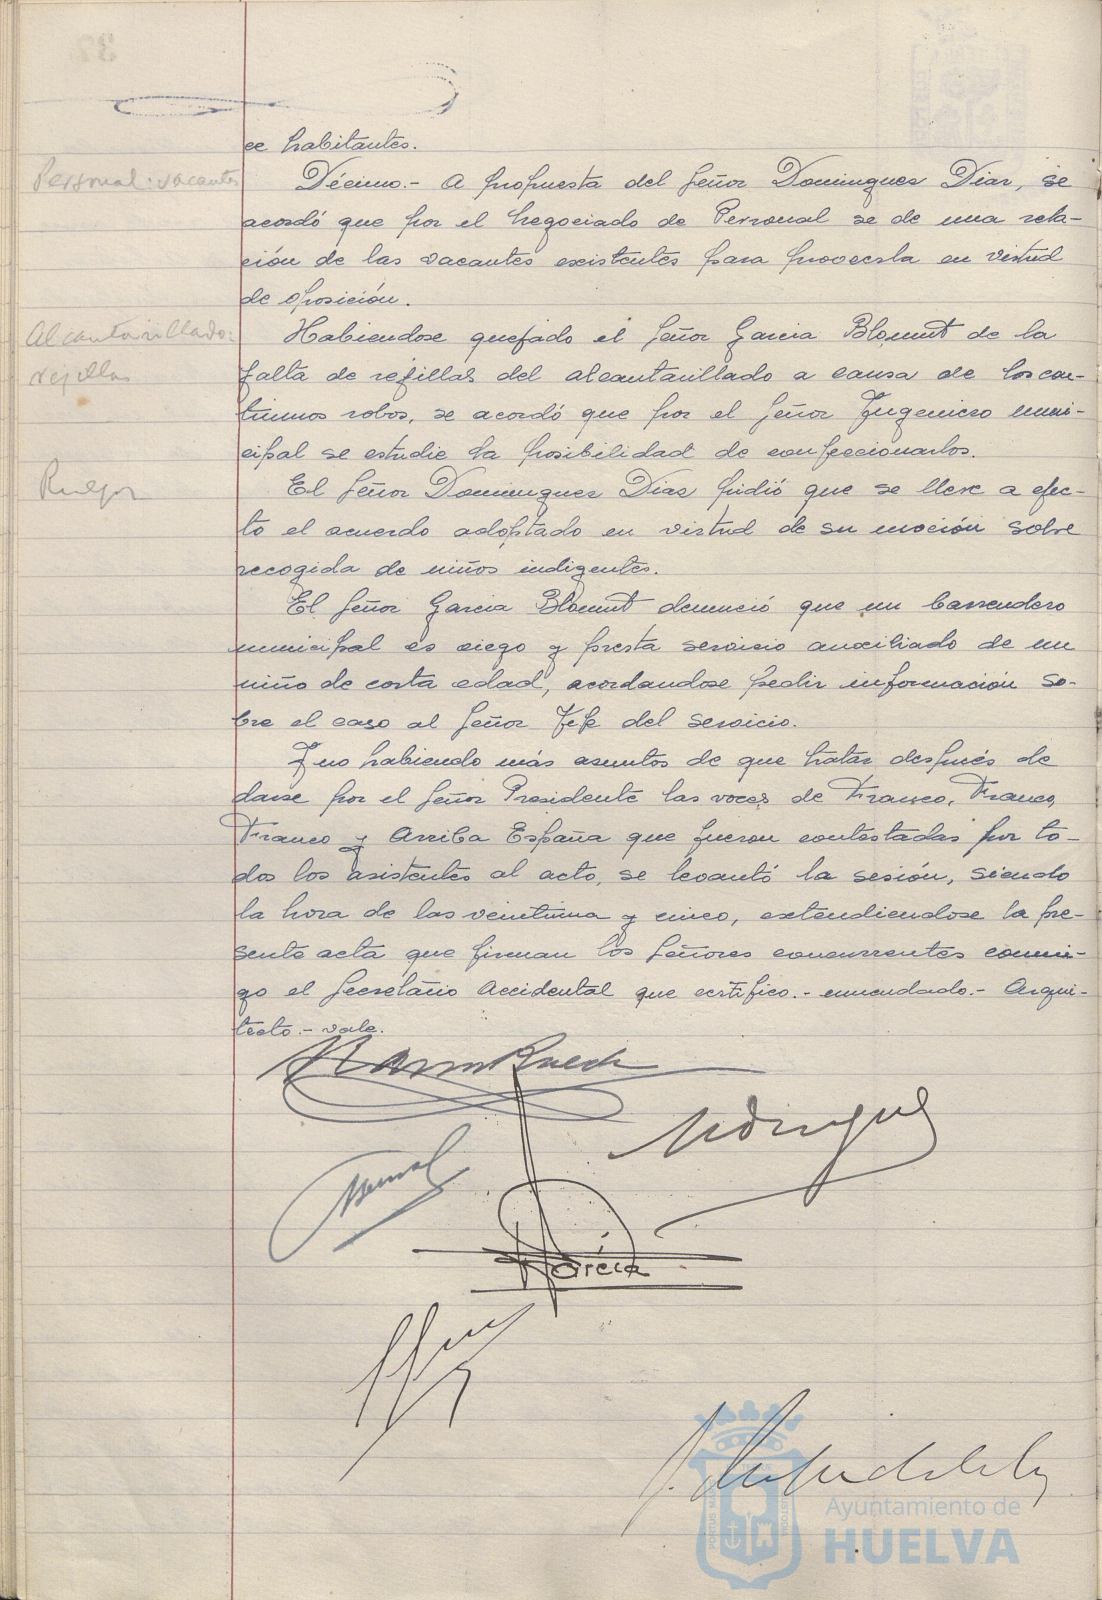 ce habitantes.
Personal: vacantes
Décimo.- A propuesta del Señor Dominguez Diaz, se
acordó que por el Negociado de Personal se de una rela-
ción de las vacantes existentes para proveerla en virtud
de oposición.
Alcantarillado:
rejillas
Habiendose quejado el Señor Garcia Blomut de la
falta de rejillas del alcantarillado a causa de los con-
tinuos robos, se acordó que por el Señor Ingeniero muni-
cipal se estudie la posibilidad de confeccionarlos.
Ruegos
El Señor Dominguez Diaz pidió que se lleve a efec-
to el acuerdo adoptado en virtud de su moción sobre
recogida de niños indigentes.
El Señor Garcia Blomut denunció que un barrendero
municipal es ciego y presta servicio auxiliado de un
niño de corta edad, acordandose pedir información so-
bre el caso al Señor Jefe del servicio.
Y no habiendo más asuntos de que tratar después de
darse por el Señor Presidente las voces de Franco, Franco,
Franco y Arriba España que fueron contestadas por to-
dos los asistentes al acto, se levantó la sesión, siendo
la hora de las veintiuna y cinco, extendiendose la pre-
sente acta que firman los Señores concurrentes conmi-
go el Secretario Accidental que certifico.- enmendado.- Arqui-
tecto.- vale.
García
Ayuntamiento de
HUELVA